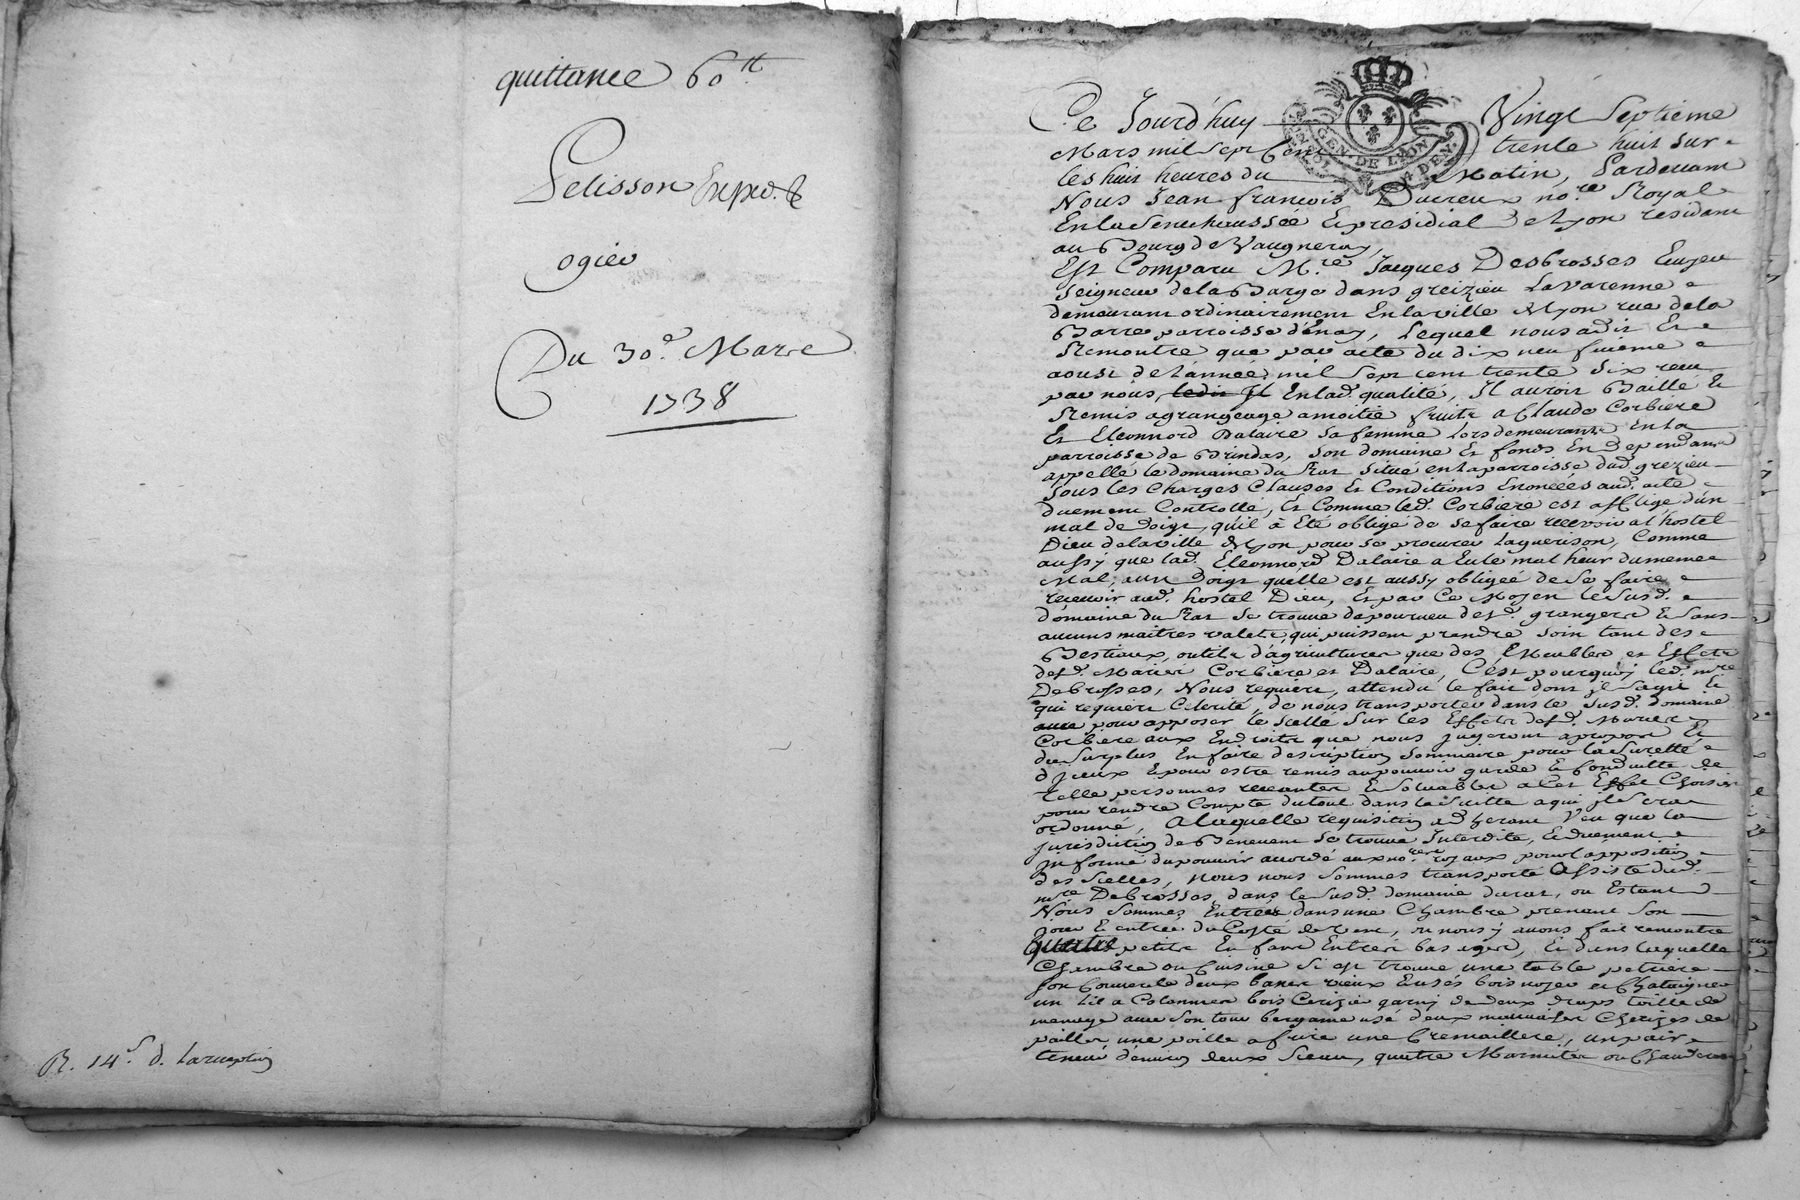 quittance 60 tt
Pelisson Exped. &
ogier
Du 30e. Mars
1738
R. 14 s d. la
Ce Jourd'huy Vingt Septieme
GEN. DE LYON
4 DEN.
Mars mil Sept Cent trente huit sur
les huit heures du Matin, Pardevant
Nous Jean francois Ducreux no.re Royal
En la Senechaussée Et presidial de Lyon residant
au Bourg de Vaugneray,
Est Comparu M.re Jacques Desbrosses Ecuyer
Seigneur de la Barge dans greizieu La Varenne
demeurant ordinairement En la ville de Lyon rue de la
Barre parroisse d'Enay, Lequel nous a dit Et
Remontré que par acte du dix neufvieme
aoust de L'année mil Sept cent trente Six receu
par nous, En lad. qualité, Il auroit Baillé Et
Remis a grangeage a moitié fruits a Claude Corbiere
Et Eleonnord Dalaire Sa femme Lors demeurants En la
parroisse de Brindas, Son domaine Et fonds En dependants
appellé le domaine du Rat Situé en la parroisse dud. grezieu
Sous les Charges Clauses Et Conditions Enoncées aud. acte
duement Controllé, Et Comme led. Corbiere est affligé d'un
mal de doigt, qu'il à Eté obligé de se faire recevoir a l'hostel
Dieu de la ville de Lyon pour se procurer La guerison, Comme
aussy que lad. Eleonnord Dalaire a Eu le mal heur du meme
Mal, a un doigt quelle est aussy obligée de Se faire
recevoir aud. hostel Dieu, Et par Ce Moyen le Susd.
domaine du Rat Se trouve depourveu desd. grangers Et Sans
aucuns maitres valets, qui puissent prendre soin tant des
Bestiaux, outils d'agriculture que des Meubles et Effets
desd. Mariés Corbiere et Dalaire, C'est pourquoy led. M.re
Debrosses, Nous requiert, attendu le fait dont il S'agit Et
qui requiert Celerité, de nous transporter dans le Susd. domaine
pour apposer le Scellé Sur les Effets desd. Mariés
Corbiere aux Endroits que nous jugerons a propos Et
du Surplus En faire description Sommaire pour la Surette
d'jceux Et pour estre remis au pouvoir garde Et Conduitte de
telle personnes Et Solvables a Cet Effet Choisie
pour rendre Compte du tout dans la Suitte a qui il Sera
ordonné, A laquelle requisition adherant Veu que la
Jurisdiction de Se trouve Interdite, Et duement
Informé du pouvoir accordé aux no.res royaux pour l'apposition
des Scellés, nous nous Sommes transporté Assisté dud.
m.re Debrosses, dans le Susd. domaine du rat, ou Estant
Nous Sommes Entrées dans une Chambre prenant Son
jour Et entrée du Costé de vent, ou nous y avons fait remontré
petits En fant Entres bas ages, Et dans laquelle
Chambre ou Cuisine Si est trouvé une table petriere
Son Couvercle deux bancs vieux Et usés bois noyer et Chataigner
un Lit a Colonnes bois Cerizier garny de deux draps toille de
menage avec son tour bergame usé deux mauvaises Chaizes de
pailles une poille a frire une Cremaillere, un pair
tenant d'environ deux Seaux, quatre Marmites ou Chauderons